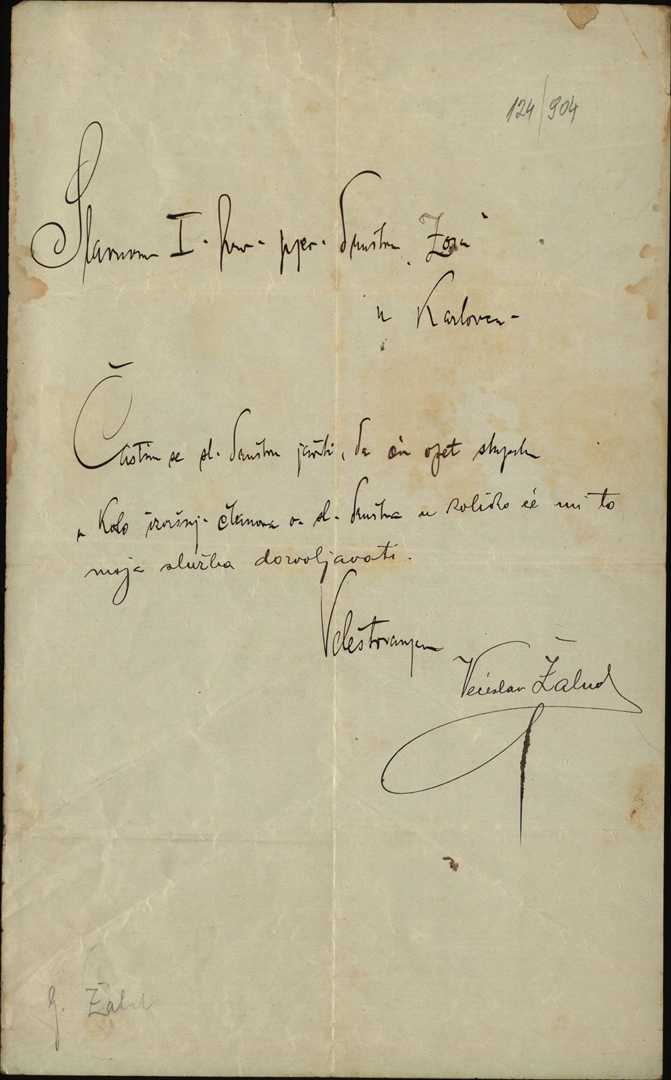 124/904
Slavnom I. hrv. pjev. društvu „Zora“
u Karlovcu.
Častim se sl. društvu javiti, da ću opet stupiti
u kolo izvršuj. članova sl. društva u koliko će mi to
moja služba dozvoljavati.
Veleštovanjem
Većeslav Žalud
G. Žalud